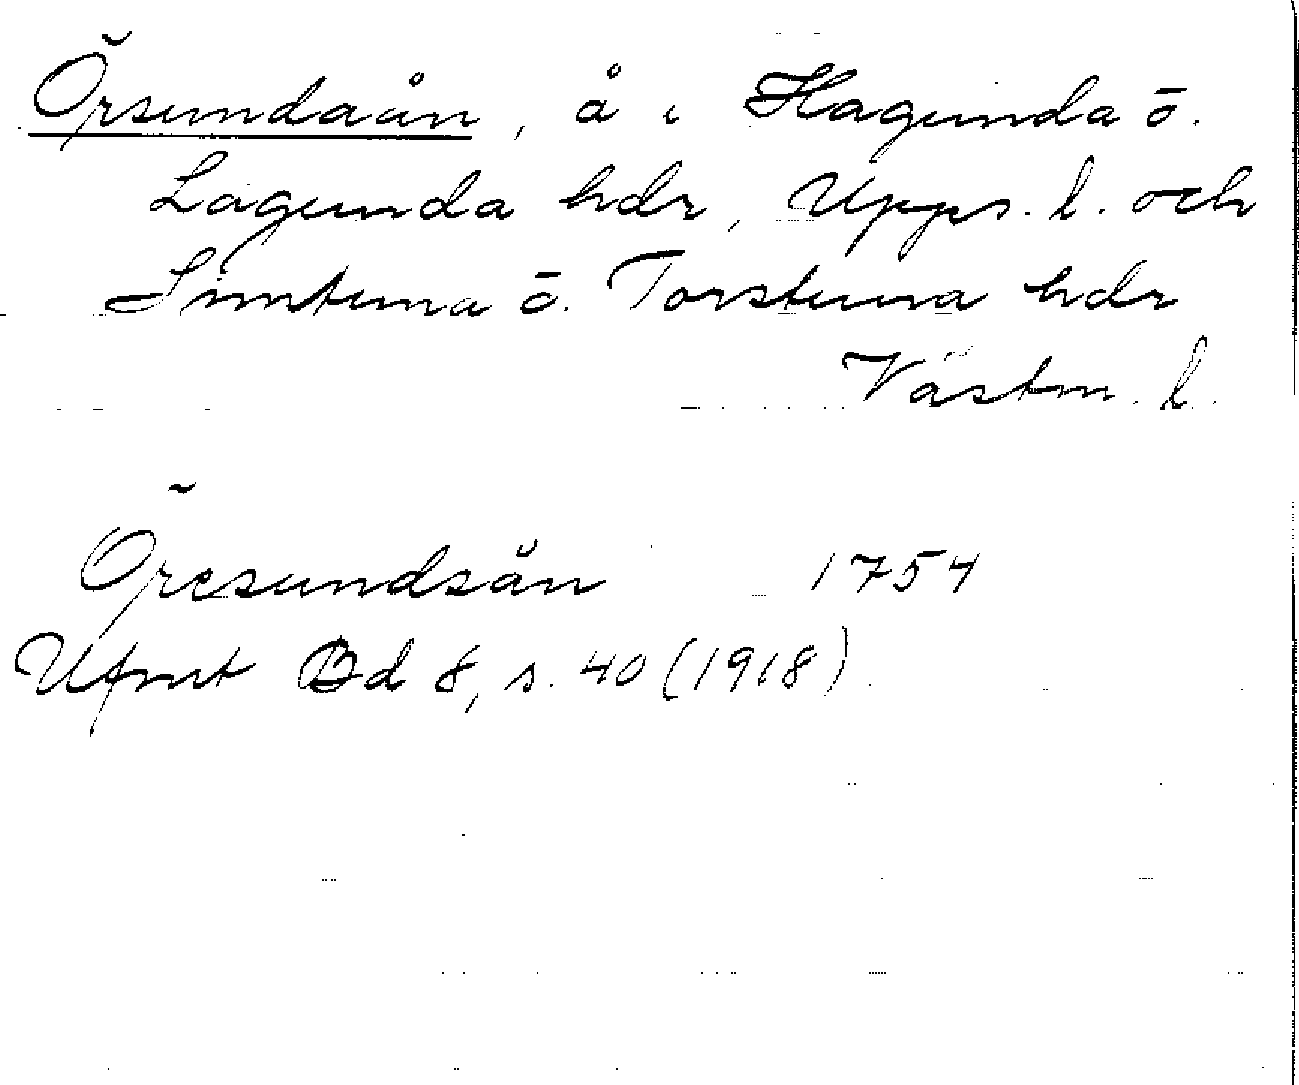 Örsundaån, å i Hagunda o.
Lagunda hdr, Upps. l. och
Simtuna o. Torstuna hdr
Västm. l.
Öresundsån 1754
Ufmt Bd 8, s. 40 (1918)